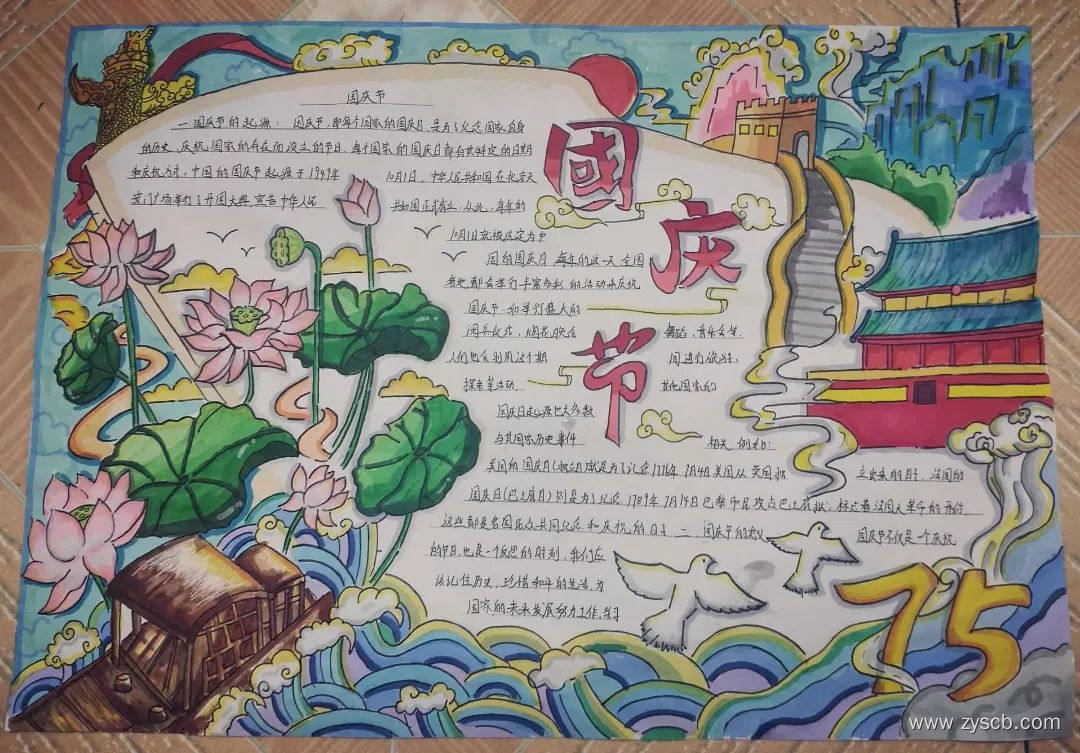 国庆节
一 国庆节的起源： 国庆节，即每个国家的国庆日，是为了纪念国家自身
的历史、庆祝国家的存在而设立的节日，每个国家的国庆日都有其特定的日期
和庆祝方式，中国的国庆节起源于1949年 10月1日，中华人民共和国在北京天
安门广场举行了开国大典，宣告中华人民 共和国正式成立，从此，每年的
10月1日就被选定为中
国的国庆日，每年的这一天，全国
各地都会举行丰富多彩的活动来庆祝
国庆节，如举行盛大的
阅兵仪式，烟花晚会 舞蹈，音乐会等，
人们也会利用这个期 间进行旅游，
探亲等活动， 其他国家的
国庆日起源也大多数
与其国家历史事件 相关，例如：
美国的国庆日（独立日）就是为了纪念1776年7月4日美国从英国独 立出来的日子，法国的
国庆日（巴士底日）则是为了纪念1789年7月14日巴黎市民攻占巴士底狱，标志着法国大革命的开始
这些都是各国民众共同纪念和庆祝的日子 二，国庆节的意义 国庆节不仅是一个庆祝
的节日，也是一个反思的时刻，我们应
该记住历史，珍惜和平的生活，为
国家的未来发展努力工作，学习
國
庆
节
75
www.zyscb.com